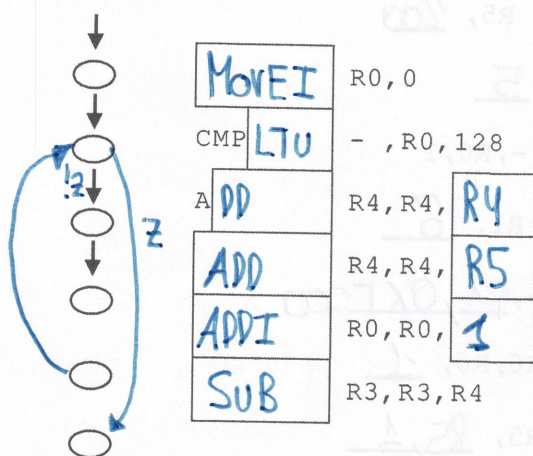 MovEI R0,0
CMP LTU - ,R0,128
!z
ADD R4,R4, R4
z
ADD R4,R4, R5
ADDI R0,R0, 1
SUB R3,R3,R4